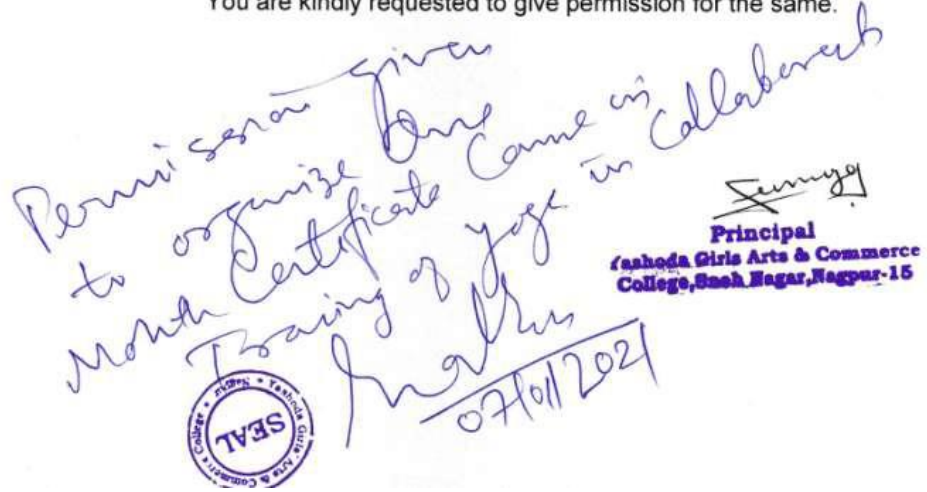 You are kindly requested to give permission for the same.
Permission given
to organize One
Month Certificate Course in
Training of yoga in collaborat
07/01/2021
Principal
Yashoda Girls Arts & Commerce
College, Sneh Nagar, Nagpur-15
Yashoda Girls' Arts & Commerce College * Nagpur *
SEAL